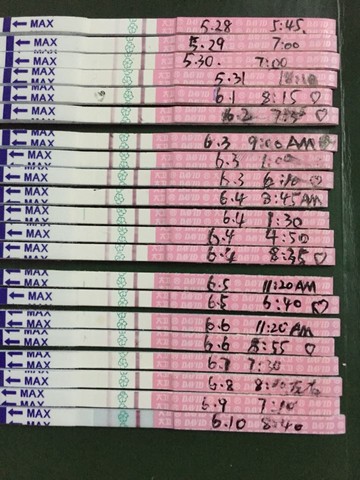 ← MAX 5.28 5:45.
← MAX 5.29 7:00
← MAX 5.30. 7:00
← MAX 5.31
← MAX 6.1 8:15 ♡
← MAX 6.2
← MAX 6.3 9:00 AM
← MAX 6.3 1:00
← MAX 6.3 ♡
← MAX 6.4 :45AM
← MAX 6.4 1:30
← MAX 6.4 4:50
← MAX 6.4 8:35 ♡
← MAX 6.5 11:20AM
← MAX 6.5 6:40 ♡
← MAX 6.6 11:20 AM
← MAX 6.6 :55 ♡
← MAX 6.7 7:30
← MAX 6.8
← MAX 6.9 7:10
← MAX 6.10 8:40